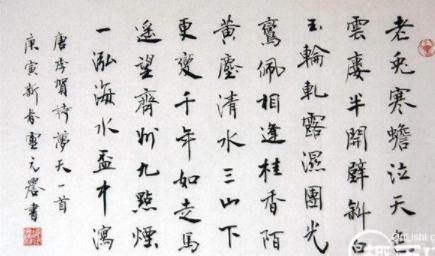 老兔寒蟾泣天色
雲廔半開壁斜白
玉輪軋露濕團光
鸞佩相逢桂香陌
黃塵清水三山下
更變千年如走馬
遙望齊州九點煙
一泓海水盃中瀉
唐李賀詩夢天一首
庚寅新春元書